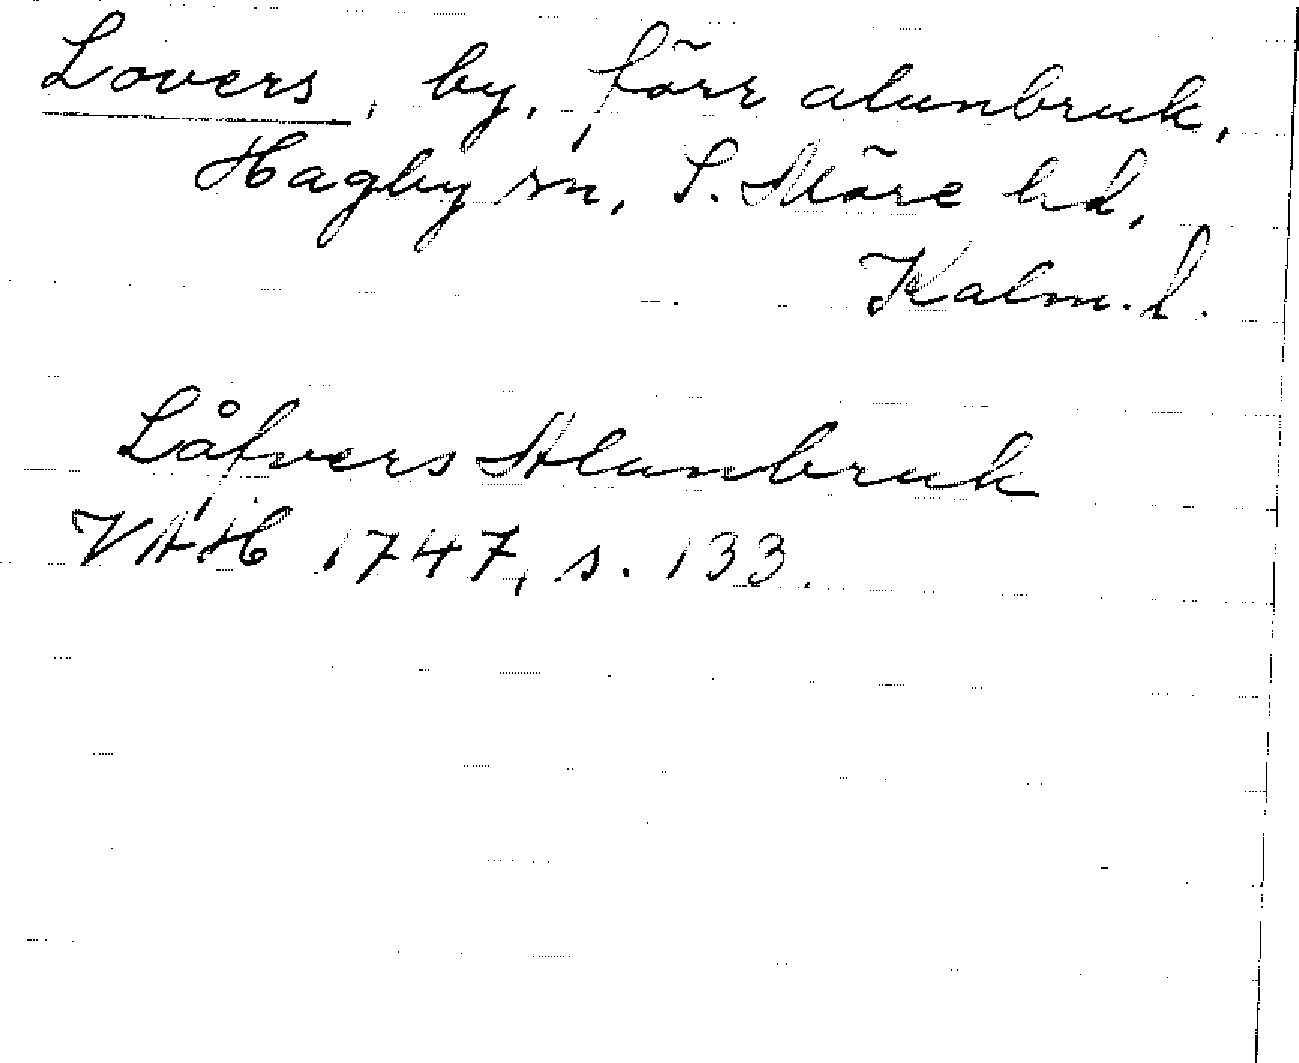 Lovers, by, förr alunbruk,
Hagby sn, S. Möre hd,
Kalm. l.
Låfvers Alunbruk
VAH 1747, s. 133.